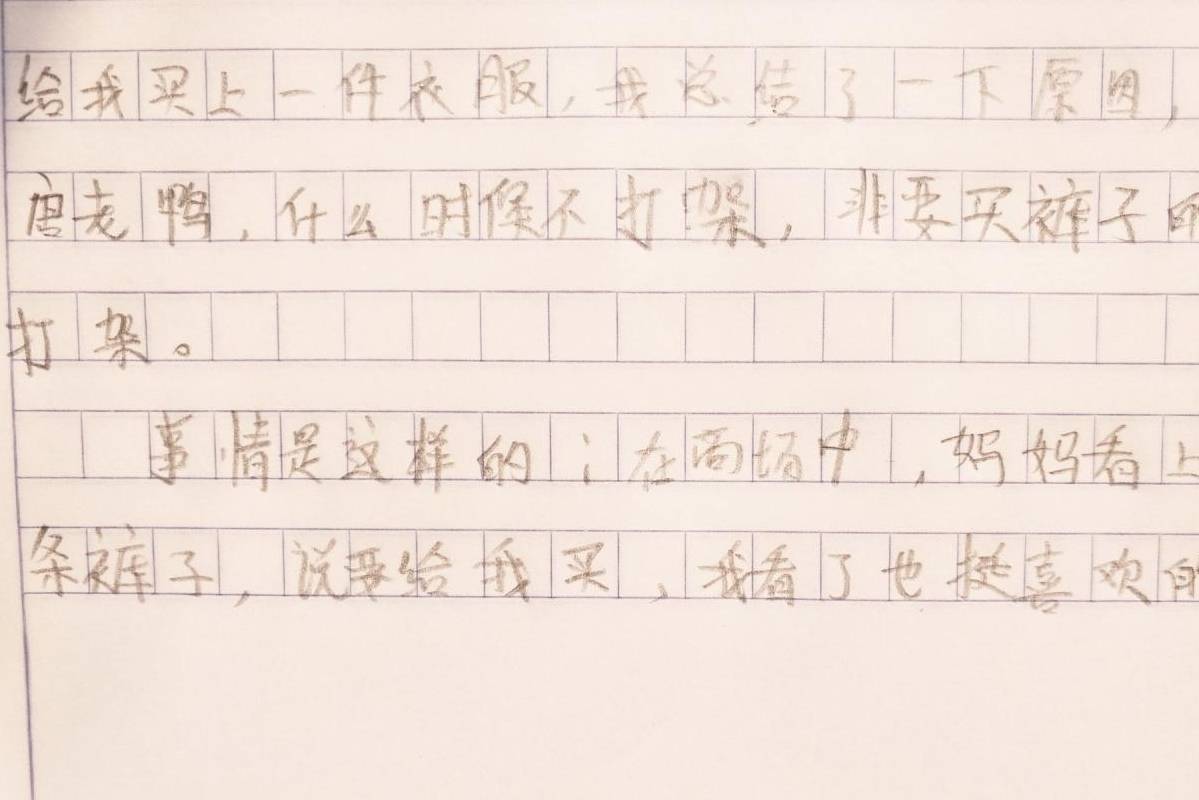 给我买上一件衣服,我总结了一下原因,
唐老鸭,什么时候不打架,非要买裤子
打架。
事情是这样的:在商场中,妈妈看上
条裤子,说要给我买,我看了也挺喜欢